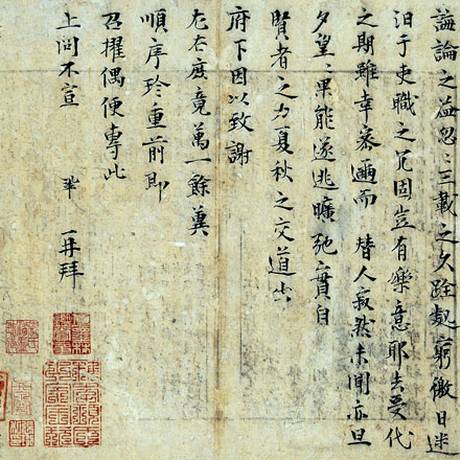 誨論之益忽〻三載之久跧處窮徼日迷
汩于吏職之冗固豈有樂意耶去受代
之期雖幸密邇而替人寂然未聞亦旦
夕望〻果能遂逃曠弛實自
賢者之力夏秋之交道出
府下因以致謝
左右庶竟萬一餘冀
順序珍重前即
召擢偶便專此
上問不宣 鞏 再拜